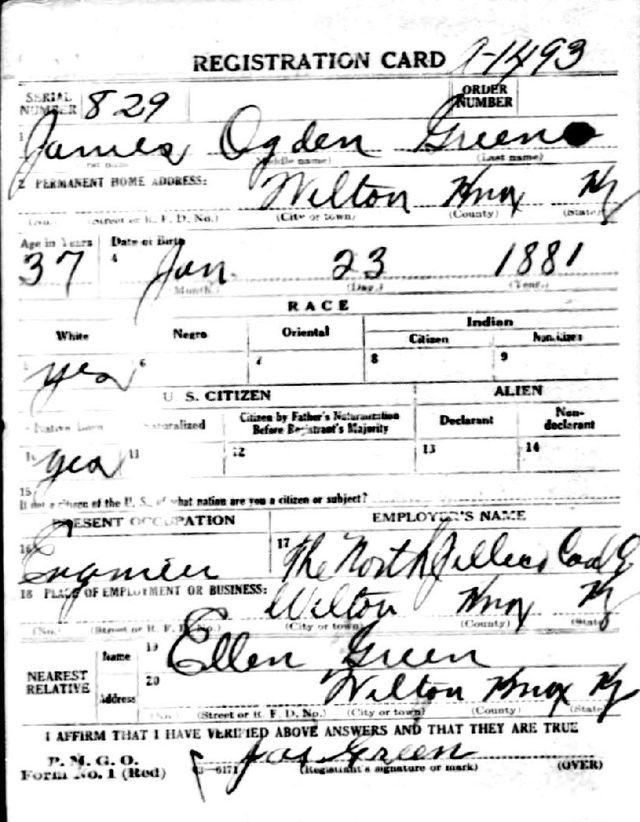 REGISTRATION CARD A-1493
SERIAL NUMBER 829 ORDER NUMBER
1 James Ogden Green
(Middle name) (Last name)
2 PERMANENT HOME ADDRESS: Wilton Knox Ky
(No.) (Street or R. F. D. No.) (City or town) (County) (State)
Age in Years Date of Birth
37 4 Jan. 23 1881
(Month.) (Day.) (Year.)
RACE
White Negro Oriental Indian
Citizen Noncitizen
yes 6 7 8 9
U. S. CITIZEN ALIEN
Native Born Naturalized Citizen by Father's Naturalization Before Registrant's Majority Declarant Non-declarant
10 yes 11 12 13 14
15
If not a citizen of the U. S., of what nation are you a citizen or subject?
PRESENT OCCUPATION EMPLOYER'S NAME
16 Engineer 17 The North Coal
18 PLACE OF EMPLOYMENT OR BUSINESS: Wilton Knox Ky
(No.) (Street or R. F. D. No.) (City or town) (County) (State)
NEAREST RELATIVE Name 19 Ellen Green
Address 20 Wilton Knox Ky
(No.) (Street or R. F. D. No.) (City or town) (County) (State)
I AFFIRM THAT I HAVE VERIFIED ABOVE ANSWERS AND THAT THEY ARE TRUE
P. M. G. O.
Form No. 1 (Red) 03-6171 Jas Green (Registrant's signature or mark) (OVER)